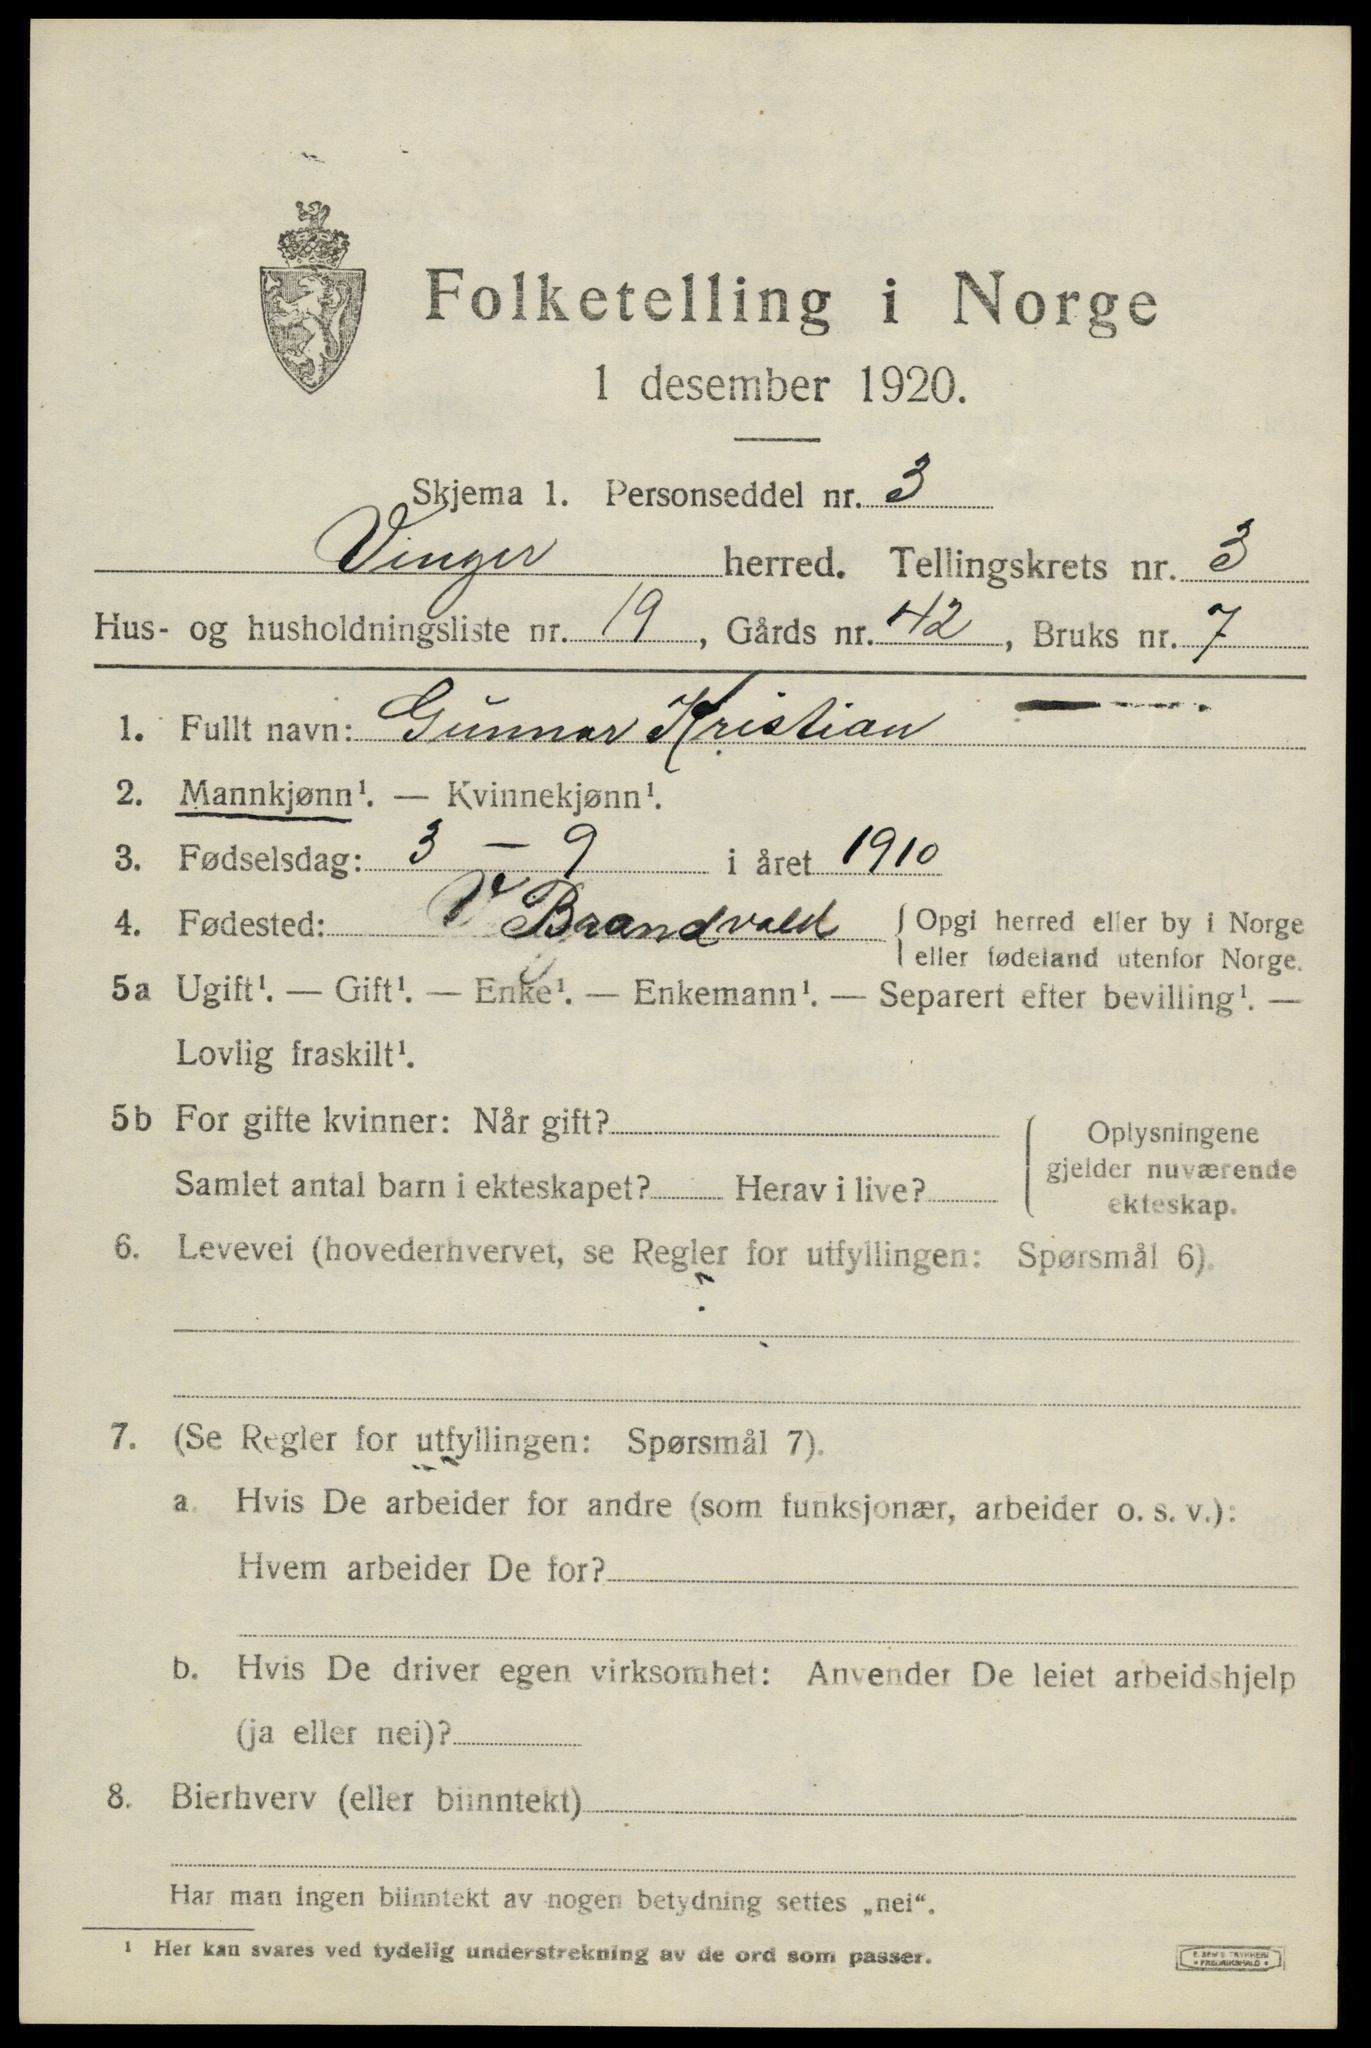 Folketelling i Norge
1 desember 1920.
Skjema 1. Personseddel nr. 3
Vinger herred. Tellingskrets nr. 3
Hus- og husholdningsliste nr. 19, Gårds nr. 42, Bruks nr. 7
1. Fullt navn: Gunnar Kristian
2. Mannkjønn¹. — Kvinnekjønn¹.
3. Fødselsdag: 3 – 9 i året 1910
4. Fødested: V Brandvold { Opgi herred eller by i Norge
eller fødeland utenfor Norge.
5a Ugift¹. — Gift¹. — Enke¹. — Enkemann¹. — Separert efter bevilling¹. —
Lovlig fraskilt¹.
5b For gifte kvinner: Når gift?
Samlet antal barn i ekteskapet? Herav i live?
Oplysningene
gjelder nuværende
ekteskap.
6. Levevei (hovederhvervet, se Regler for utfyllingen: Spørsmål 6).
7. (Se Regler for utfyllingen: Spørsmål 7).
a. Hvis De arbeider for andre (som funksjonær, arbeider o. s. v.):
Hvem arbeider De for?
b. Hvis De driver egen virksomhet: Anvender De leiet arbeidshjelp
(ja eller nei)?
8. Bierhverv (eller biinntekt)
Har man ingen biinntekt av nogen betydning settes „nei“.
¹ Her kan svares ved tydelig understrekning av de ord som passer.
TRYKKERI
FREDRIKSHALD